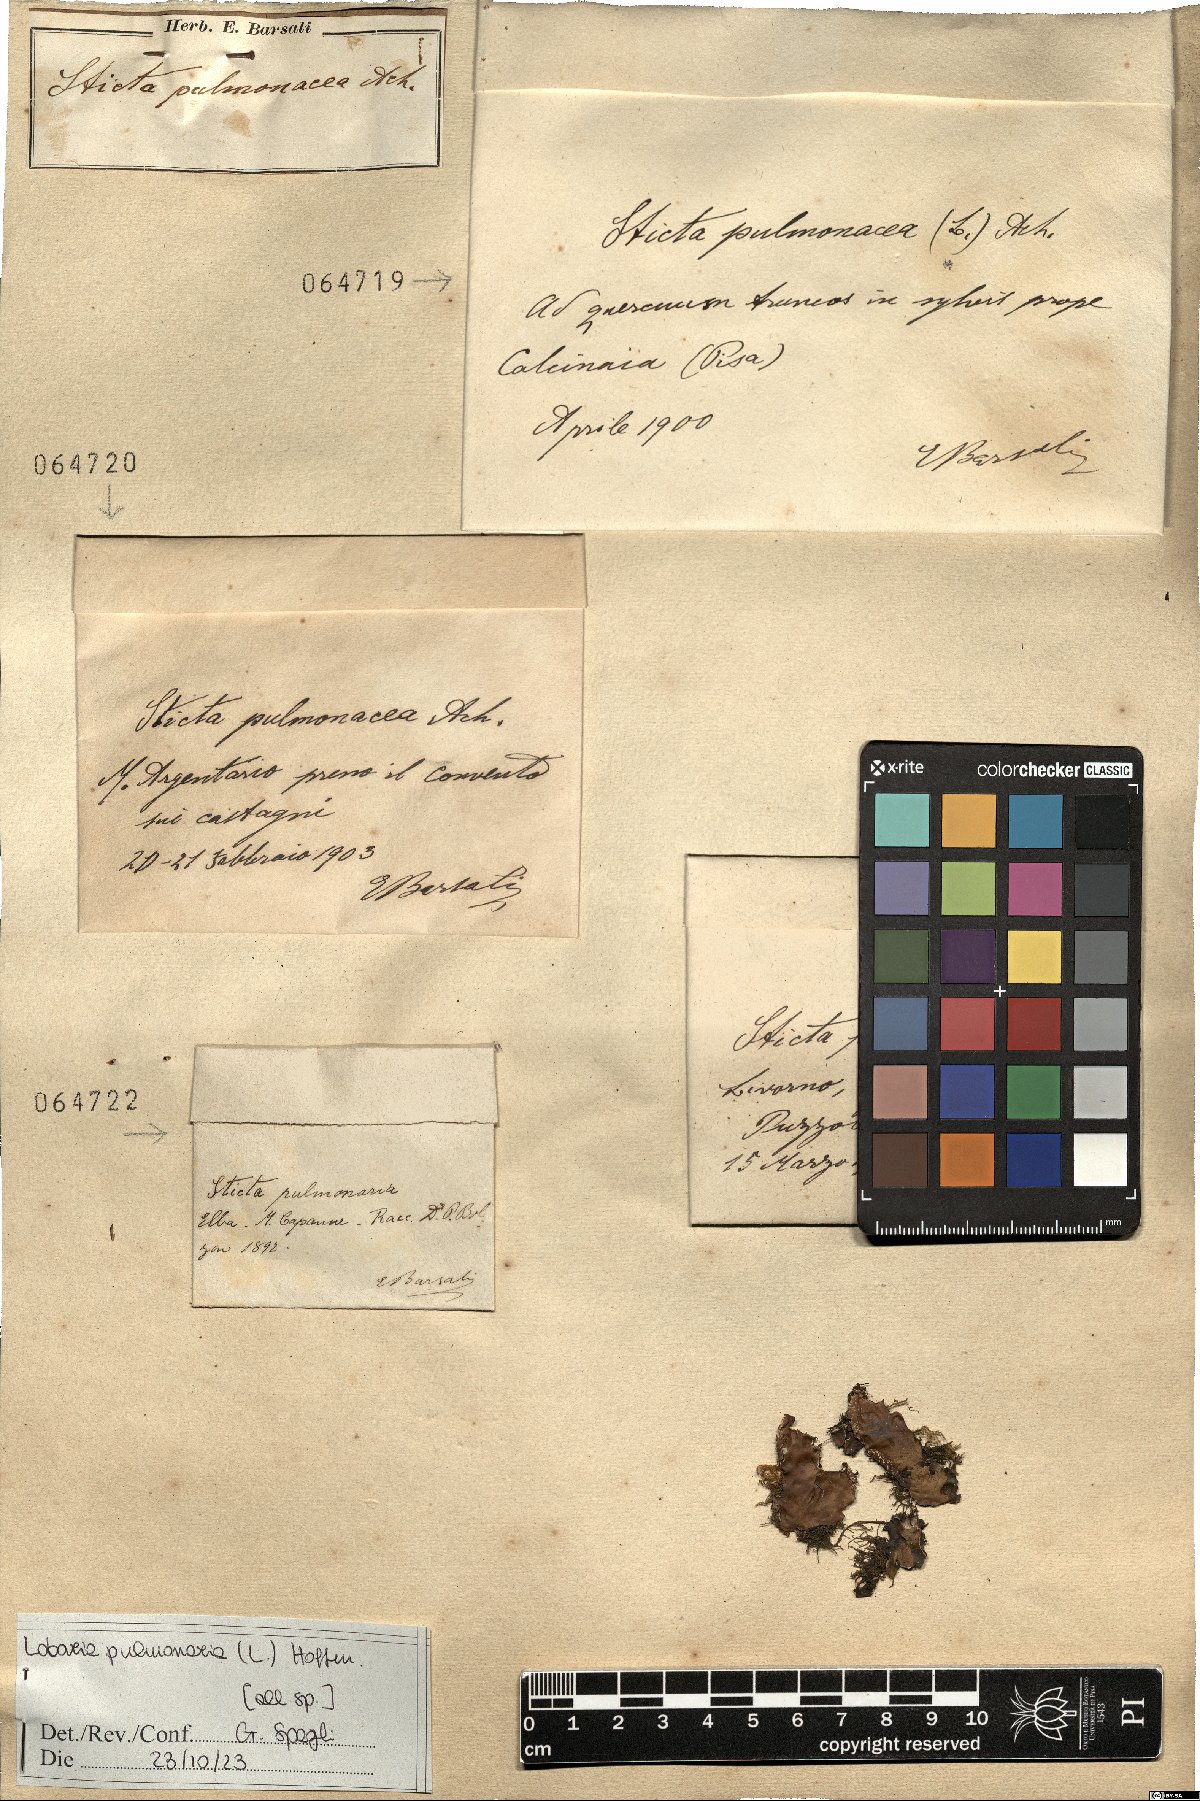 Herb. E. Barsali
Sticta pulmonacea Ach.
Sticta pulmonacea (L.) Ach.
064719
Ad quercuum truncos in sylvis prope
Calcinaia (Pisa)
Aprile 1900
E Barsali
064720
Sticta pulmonacea Ach.
M. Argentario presso il Convento
sui castagni
20-21 Febbraio 1903
E Barsali
x·rite
colorchecker CLASSIC
mm
Sticta
Livorno,
15 Marzo
064722
Sticta pulmonaria
Elba. M. Capanne. Racc. Dr. P. Bol
zon 1892.
E Barsali
Lobaria pulmonaria (L.) Hoffm.
[all sp.]
Det./Rev./Conf. G. Spagli
Die 23/10/23
0 1 2 3 4 5 6 7 8 9 10
cm
copyright reserved
ORTO E MUSEO BOTANICO
UNIVERSITÀ DI PISA
1543
PI